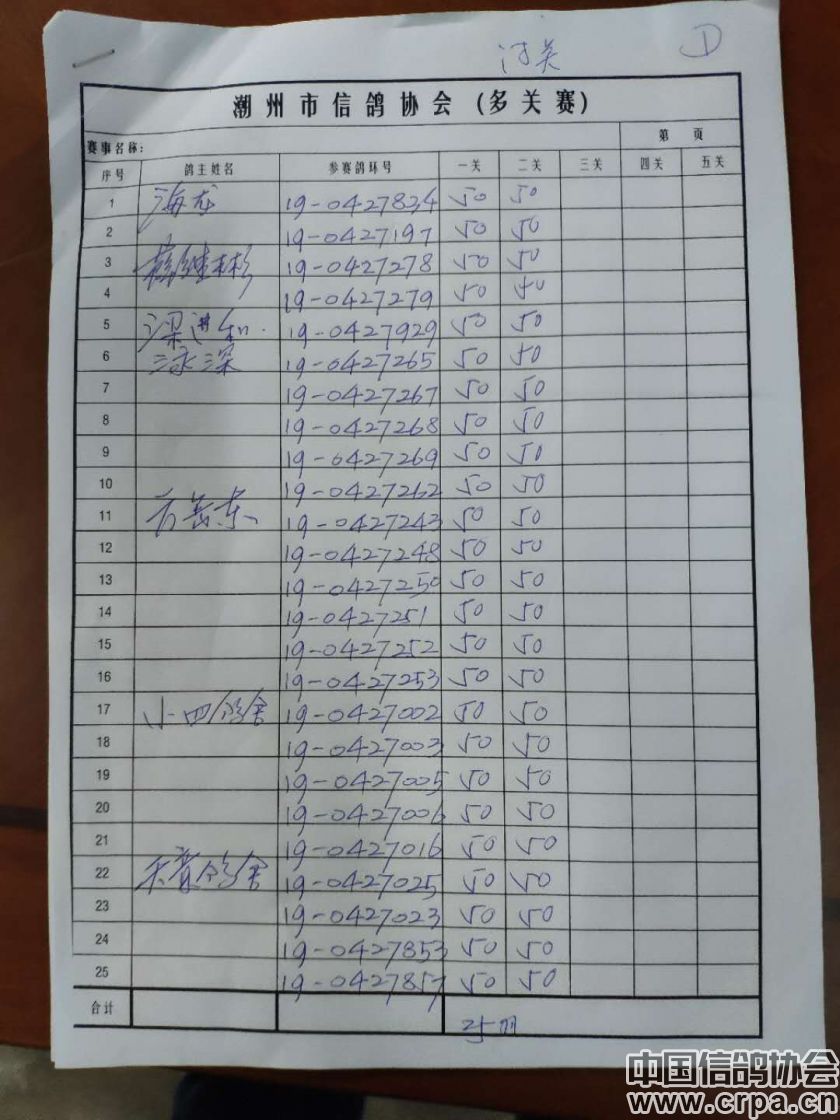 潮州市信鸽协会(多关赛)
赛事名称: 第 页
序号 鸽主姓名 参赛鸽环号 一关 二关 三关 四关 五关
1 海龙 19-0427834 50 50
2 19-0427197 50 50
3 19-0427278 50 50
4 19-0427279 50 50
5 梁进和 19-0427929 50 50
6 泳深 19-0427265 50 50
7 19-0427267 50 50
8 19-0427268 50 50
9 19-0427269 50 50
10 19-0427262 50 50
11 方岳东 19-0427243 50 50
12 19-0427248 50 50
13 19-0427250 50 50
14 19-0427251 50 50
15 19-0427252 50 50
16 19-0427253 50 50
17 小四鸽舍 19-0427002 50 50
18 19-0427003 50 50
19 19-0427005 50 50
20 19-0427006 50 50
21 19-0427016 50 50
22 鸽舍 19-0427025 50 50
23 19-0427023 50 50
24 19-0427853 50 50
25 19-0427857 50 50
合计 25羽
中国信鸽协会
www.crpa.cn